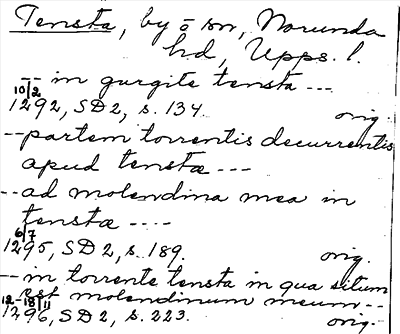 Tensta, by o sn, Norunda
hd, Upps. l.
-- in gurgite tensta ---
10/2
1292, SD 2, s. 134. orig.
--partem torrentis decurrentis
apud tenstæ ---
--ad molendina mea in
tenstæ ----
6/7
1295, SD 2, s. 189. orig.
-- in torrente tensta in qua situm
est molendinum meum --
12-18/11
1296, SD 2, s. 223. orig.